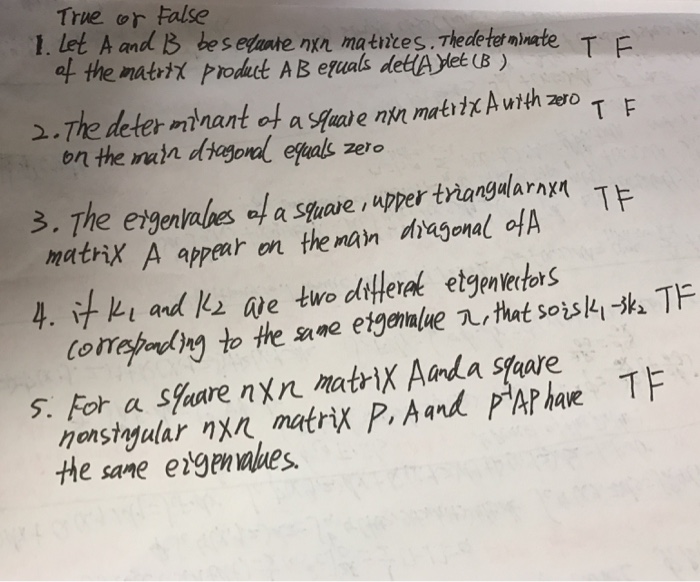 True or False
1. Let A and B be square nxn matrices. The determinate T F
of the matrix product AB equals det(A)det(B)
2. The determinant of a square nxn matrix A with zero T F
on the main diagonal equals zero
3. The eigenvalues of a square, upper triangular nxn T F
matrix A appear on the main diagonal of A
4. if K1 and K2 are two different eigenvectors
corresponding to the same eigenvalue λ, that so is k1-3k2 T F
5. For a square nxn matrix A and a square
nonsingular nxn matrix P, A and P⁻¹AP have T F
the same eigenvalues.